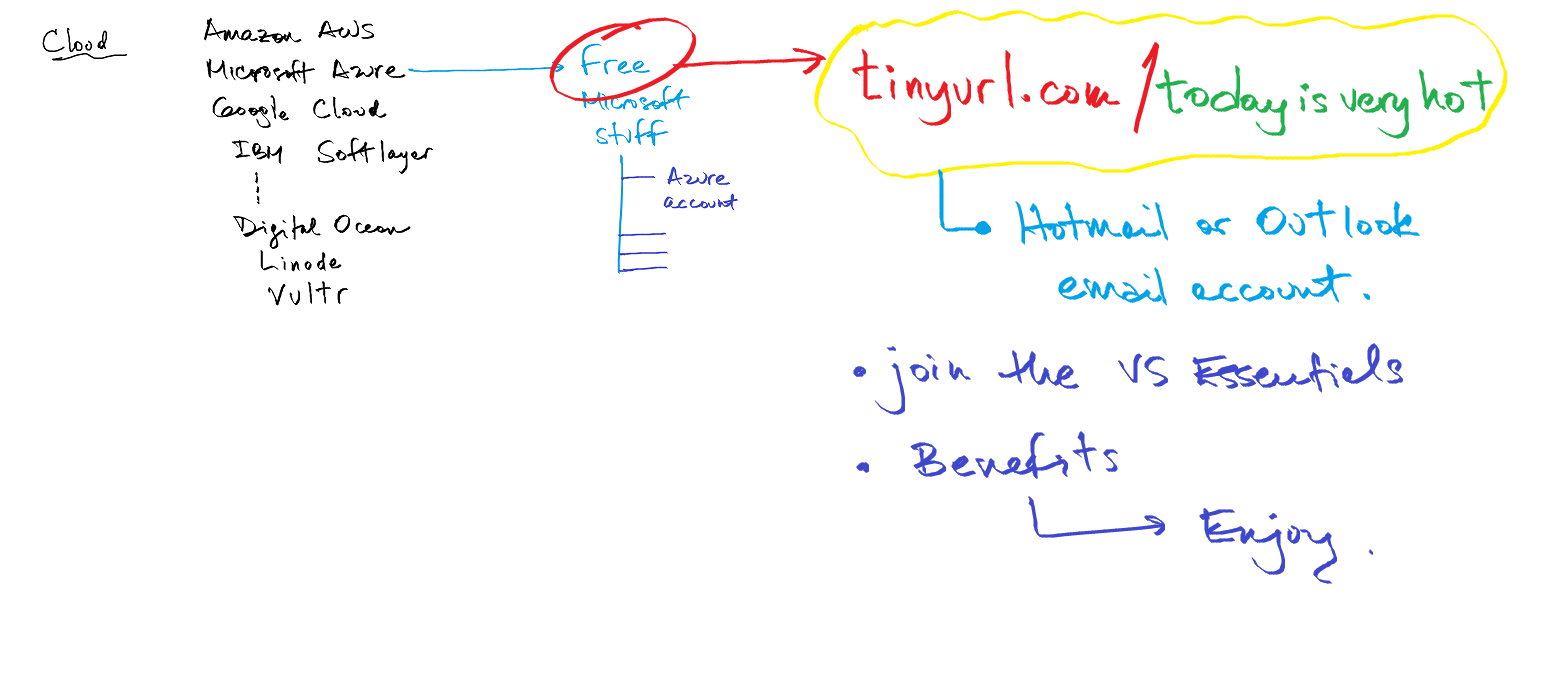 Cloud
Amazon AWS
Microsoft Azure
Google Cloud
IBM Softlayer
Digital Ocean
Linode
Vultr
Free
Microsoft
stuff
Azure
account
tinyurl.com/todayisveryhot
Hotmail or Outlook
email account.
• join the VS Essentials
• Benefits
Enjoy.